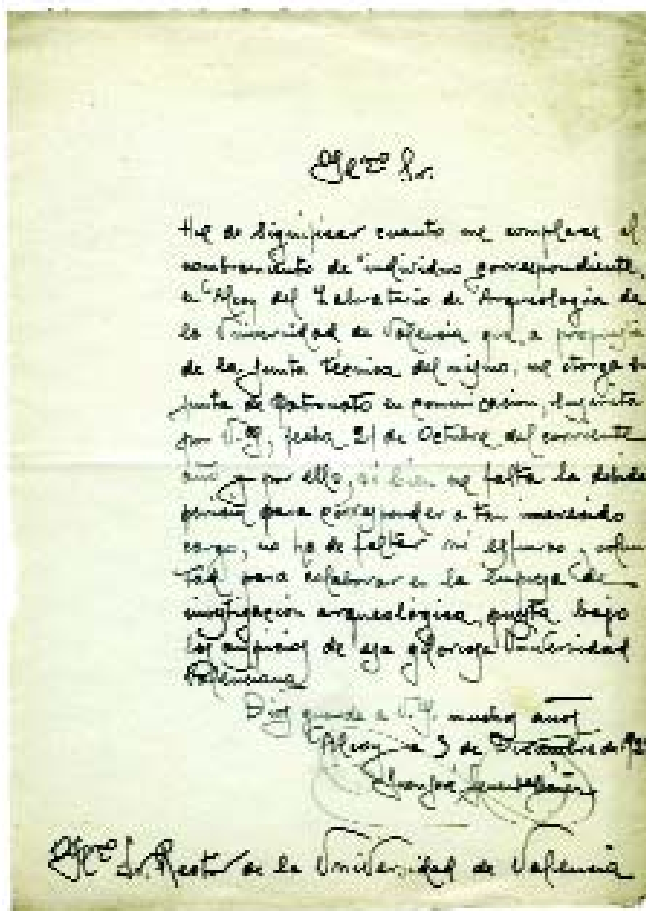 Ilmo Sr.
He de significar cuanto me complace el
nombramiento de individuo correspondiente,
en Alcoy del Laboratorio de Arqueología de
la Universidad de Valencia que, a propuesta
de la Junta técnica del mismo, me otorga su
Junta de Patronato en comunicación, suscrita
por V.I., fecha 21 de Octubre del corriente
año y por ello, si bien me falta la debida
para corresponder a tan inmerecido
cargo, no ha de faltar mi esfuerzo y volun
tad para colaborar en la empresa de
investigación arqueológica, puesta bajo
los auspicios de esa gloriosa Universidad
Valenciana
Dios guarde a V.I. muchos años
Alcoy a 3 de Diciembre de 192
Ilmo Sr. Rector de la Universidad de Valencia